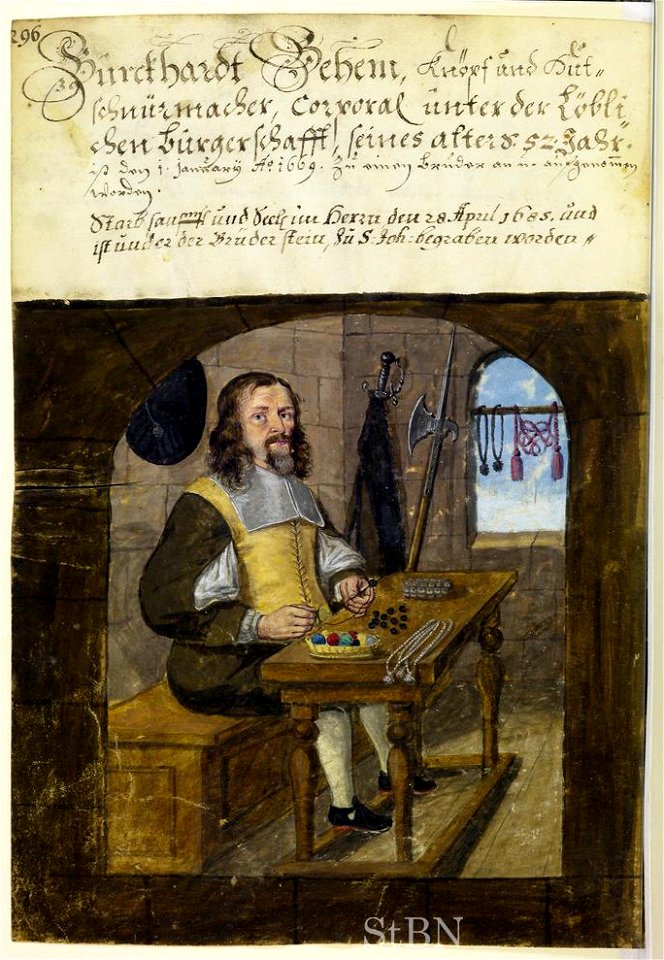 296
39
Bürckhardt Behem, Knöpf und Hüt=
schnürmacher, Corporal unter der Löbli
chen Bürgerschafft, seines alters 52 Jahr.
ist den 1. January Aº 1669. Zu einen Bruder an u. aufgenom̃en
worden.
Starb sanfft und Seelig im Herrn den 28 April 1685. und
ist under der Brüder stein, Zu S: Joh: begraben worden
StBN